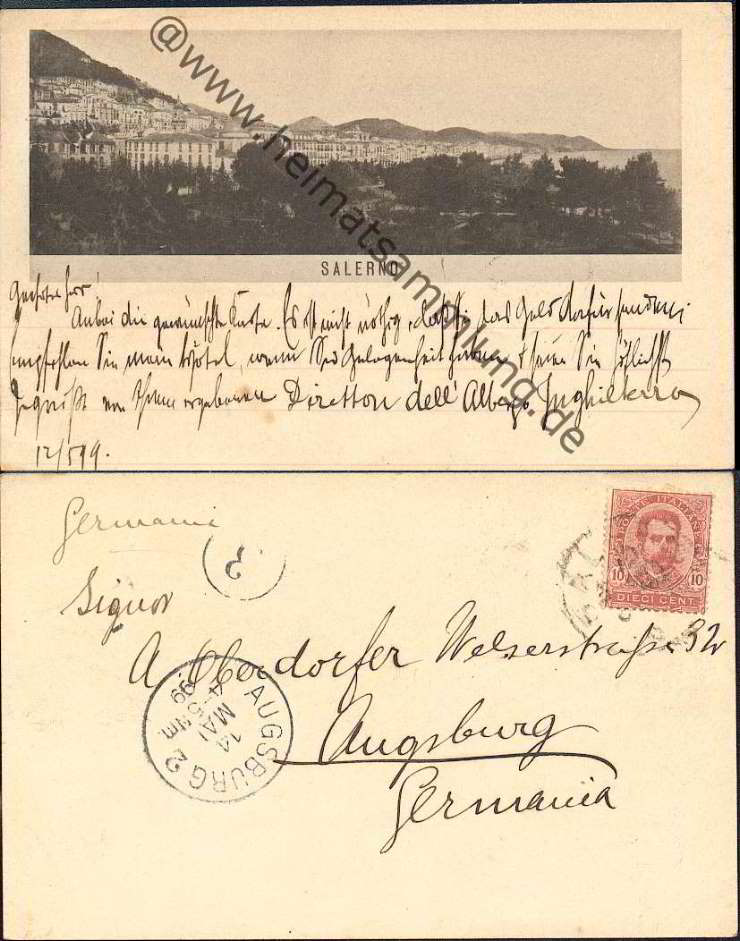 @www.heimatsammlung.de
SALERNO
Geehrter Herr!
Anbei die gewünschte Karte. Es ist nicht nöthig, daß Sie das Geld dafür senden;
empfehlen Sie mein Hôtel, wenn Sie Gelegenheit haben & seien Sie höflichst
gegrüßt von Ihrem ergebenen Direttore dell' Albergo Inghilterra
12/5 99.
Germania
3
POSTE ITALIANE
10 10
DIECI CENT.
Signor
A. Oberdorfer Welserstraße
Augsburg
Germania
AUGSBURG 2
14
MAI
4-5 NM.
99